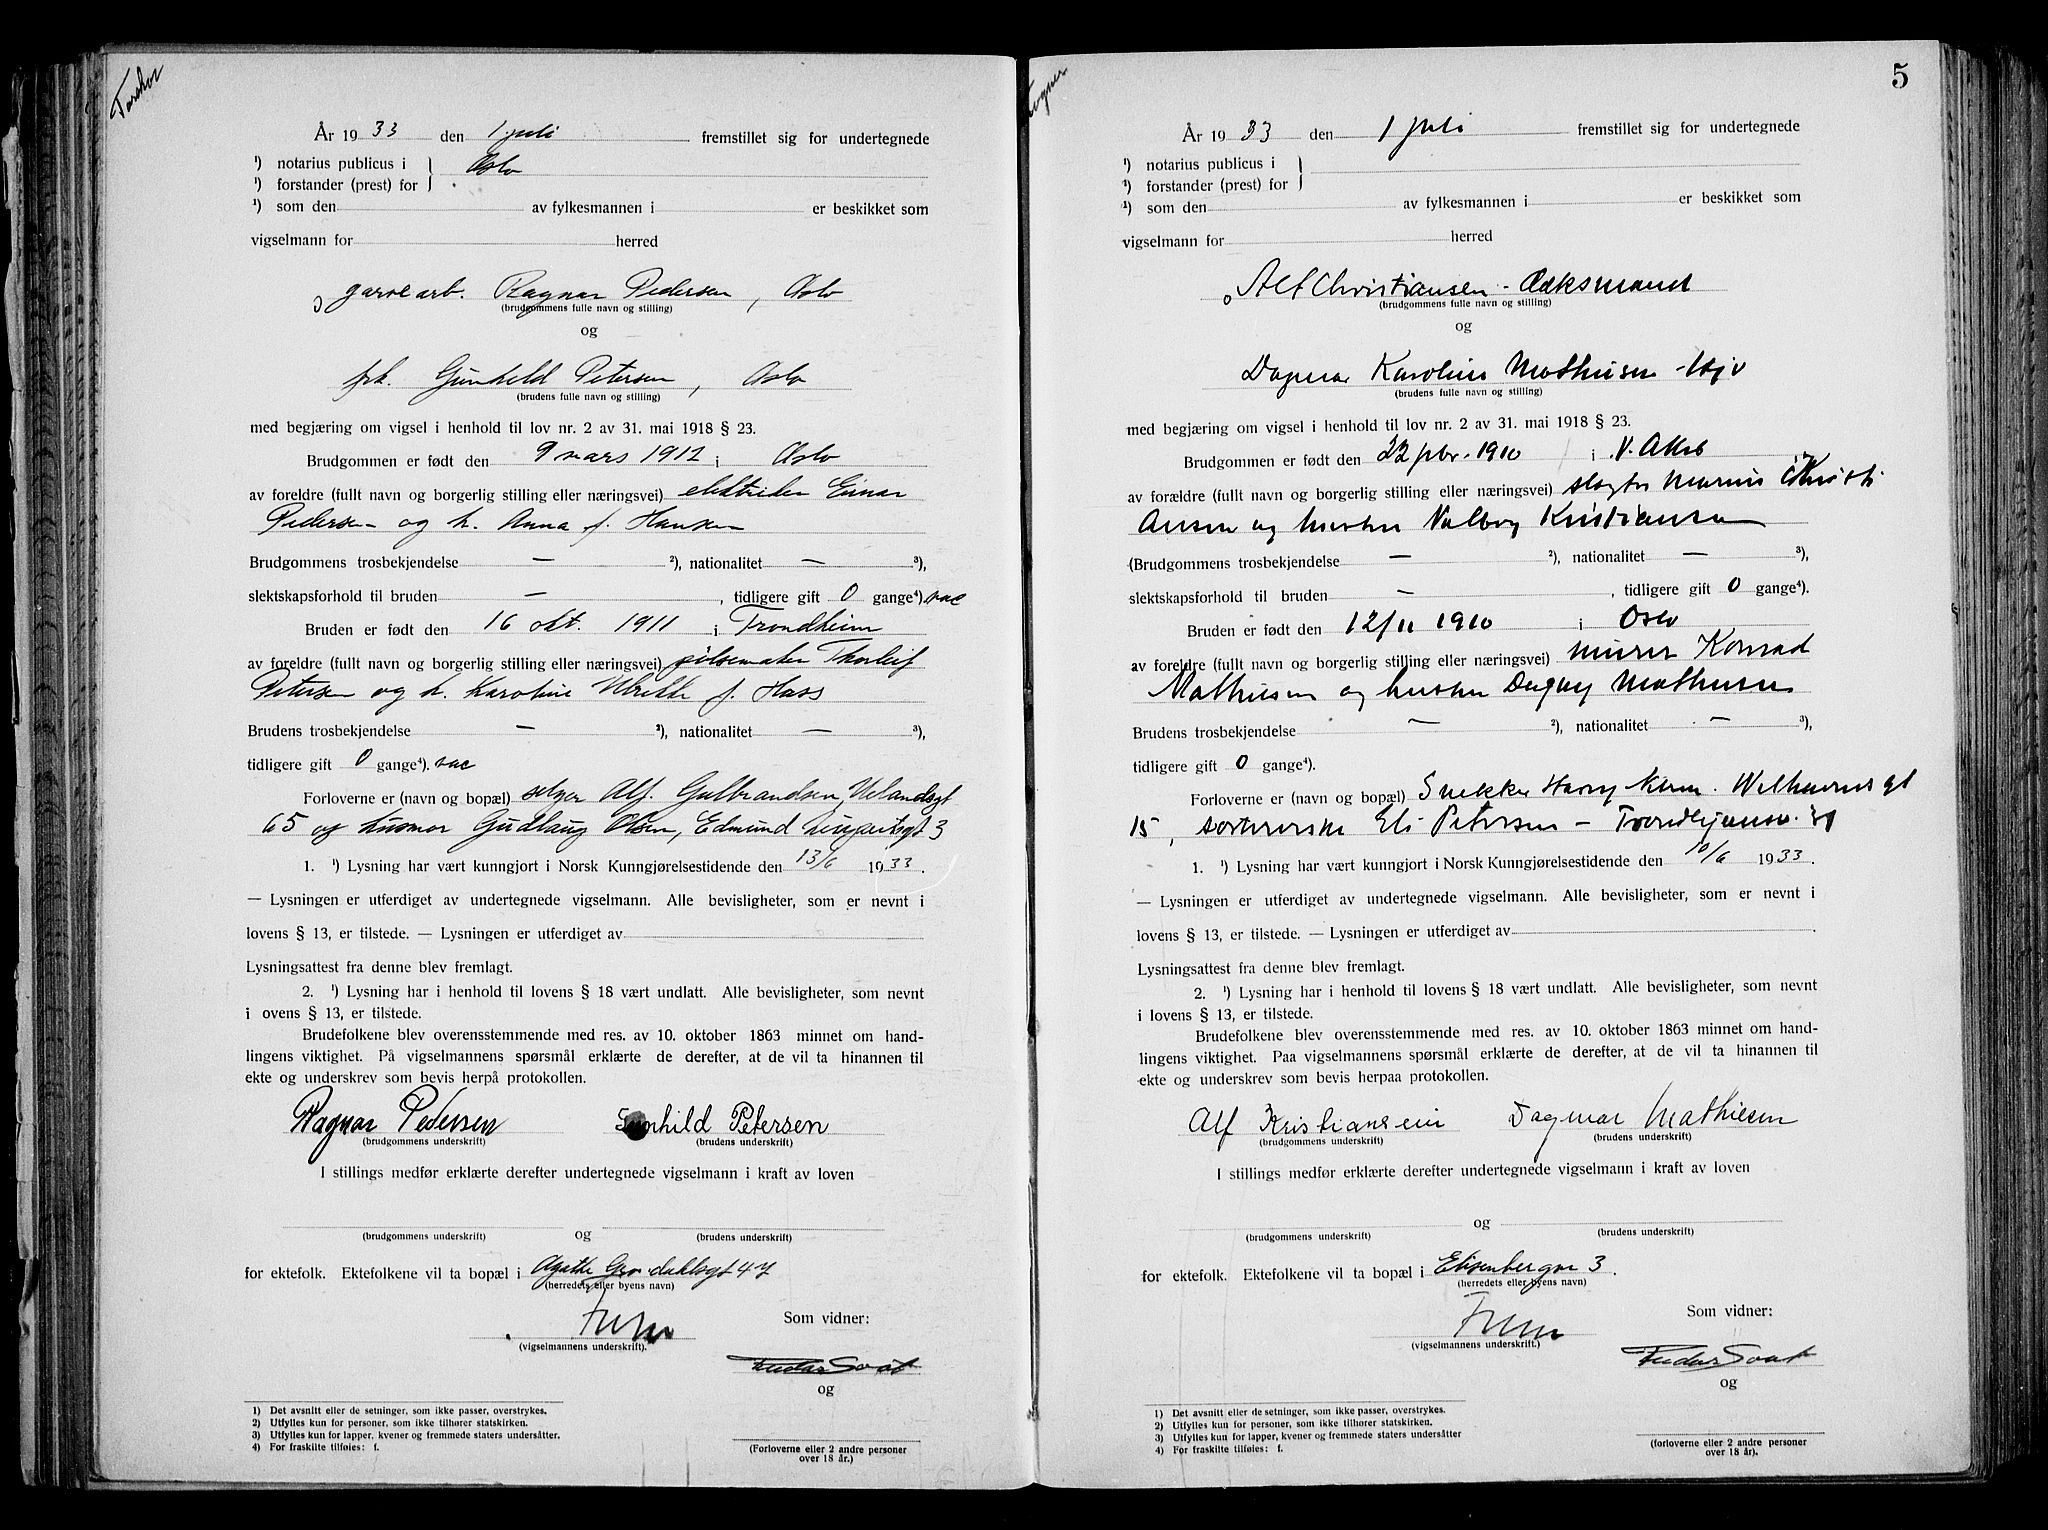 År 1933 den 1 juli fremstillet sig for undertegnede
¹) notarius publicus i } Oslo
¹) forstander (prest) for
¹) som den av fylkesmannen i er beskikket som
vigselmann for herred
garvearb. Ragnar Pedersen, Oslo
(brudgommens fulle navn og stilling)
og
frk. Gunhild Petersen, Oslo
(brudens fulle navn og stilling)
med begjæring om vigsel i henhold til lov nr. 2 av 31. mai 1918 § 23.
Brudgommen er født den 9 mars 1912 i Oslo
av foreldre (fullt navn og borgerlig stilling eller næringsvei) elektriker Einar
Pedersen og h. Anna f. Hansen
Brudgommens trosbekjendelse — ²), nationalitet — ³),
slektskapsforhold til bruden — , tidligere gift 0 gange⁴).
Bruden er født den 16 okt. 1911 i Trondheim
av foreldre (fullt navn og borgerlig stilling eller næringsvei) pølsemaker Thorleif
Petersen og h. Karoline f. Hass
Brudens trosbekjendelse — ²), nationalitet — ³),
tidligere gift 0 gange⁴).
Forloverne er (navn og bopæl) selger Alf. Gulbrandsen, Uelandsgt
65 og husmor Gudlaug Olsen, Edmund Neupertsgt 3
1. ¹) Lysning har vært kunngjort i Norsk Kunngjørelsestidende den 13/6 1933.
— Lysningen er utferdiget av undertegnede vigselmann. Alle bevisligheter, som er nevnt i
lovens § 13, er tilstede. — Lysningen er utferdiget av
Lysningsattest fra denne blev fremlagt.
2. ¹) Lysning har i henhold til lovens § 18 vært undlatt. Alle bevisligheter, som nevnt
i ovens § 13, er tilstede.
Brudefolkene blev overensstemmende med res. av 10. oktober 1863 minnet om hand-
lingens viktighet. På vigselmannens spørsmål erklærte de derefter, at de vil ta hinannen til
ekte og underskrev som bevis herpå protokollen.
Ragnar Pedersen Gunhild Petersen
(brudgommens underskrift) (brudens underskrift)
I stillings medfør erklærte derefter undertegnede vigselmann i kraft av loven
og
(brudgommens underskrift) (brudens underskrift)
for ektefolk. Ektefolkene vil ta bopæl i Agathe Grøndahlsgt 47
(herredets eller byens navn)
Som vidner:
(vigselmannens underskrift).
og
1) Det avsnitt eller de setninger, som ikke passer, overstrykes.
2) Utfylles kun for personer, som ikke tilhører statskirken.
3) Utfylles kun for lapper, kvener og fremmede staters undersåtter.
4) For fraskilte tilføies: f.
(Forloverne eller 2 andre personer
over 18 år.)
5
År 1933 den 1 juli fremstillet sig for undertegnede
¹) notarius publicus i }
¹) forstander (prest) for
¹) som den av fylkesmannen i er beskikket som
vigselmann for herred
Alf Christiansen - Oddsmand
(brudgommens fulle navn og stilling)
og
Dagmar Karoline Mathiesen
(brudens fulle navn og stilling)
med begjæring om vigsel i henhold til lov nr. 2 av 31. mai 1918 § 23.
Brudgommen er født den 22 1910 i V. Aker
av forældre (fullt navn og borgerlig stilling eller næringsvei) slagter Marius Kristi
Ansen og hustru Valborg Kristiansen
(Brudgommens trosbekjendelse — ²), nationalitet — ³),
slektskapsforhold til bruden — , tidligere gift 0 gange⁴).
Bruden er født den 12/11 1910 i Oslo
av foreldre (fullt navn og borgerlig stilling eller næringsvei) murer Konrad
Mathiesen og hustru Dagny Mathiesen
Brudens trosbekjendelse — ²), nationalitet — ³),
tidligere gift 0 gange⁴).
Forloverne er (navn og bopæl) Snekker Harry Welhavens gt
15, Petersen - Trondhjemsv.
1. ¹) Lysning har vært kunngjort i Norsk Kunngjørelsestidende den 10/6 1933.
— Lysningen er utferdiget av undertegnede vigselmann. Alle bevisligheter, som er nevnt i
lovens § 13, er tilstede. — Lysningen er utferdiget av .
Lysningsattest fra denne blev fremlagt.
2. ¹) Lysning har i henhold til lovens § 18 vært undlatt. Alle bevisligheter, som nevnt
i lovens § 13, er tilstede.
Brudefolkene blev overensstemmende med res. av 10. oktober 1863 minnet om hand-
lingens viktighet. Paa vigselmannens spørsmål erklærte de derefter, at de vil ta hinannen til
ekte og underskrev som bevis herpaa protokollen.
Alf Kristiansen Dagmar Mathiesen
(brudgommens underskrift) (brudens underskrift)
I stillings medfør erklærte derefter undertegnede vigselmann i kraft av loven
og
(brudgommens underskrift) (brudens underskrift)
for ektefolk. Ektefolkene vil ta bopæl i Elisenbergvn 3.
(herredets eller byens navn)
Som vidner:
(vigselmannens underskrift).
og
1) Det avsnitt eller de setninger, som ikke passer, overstrykes.
2) Utfylles kun for personer, som ikke tilhører statskirken.
3) Utfylles kun for lapper, kvener og fremmede staters undersåtter
4) For fraskilte tilføies: f.
(forloverne eller 2 andre personer
over 18 år).